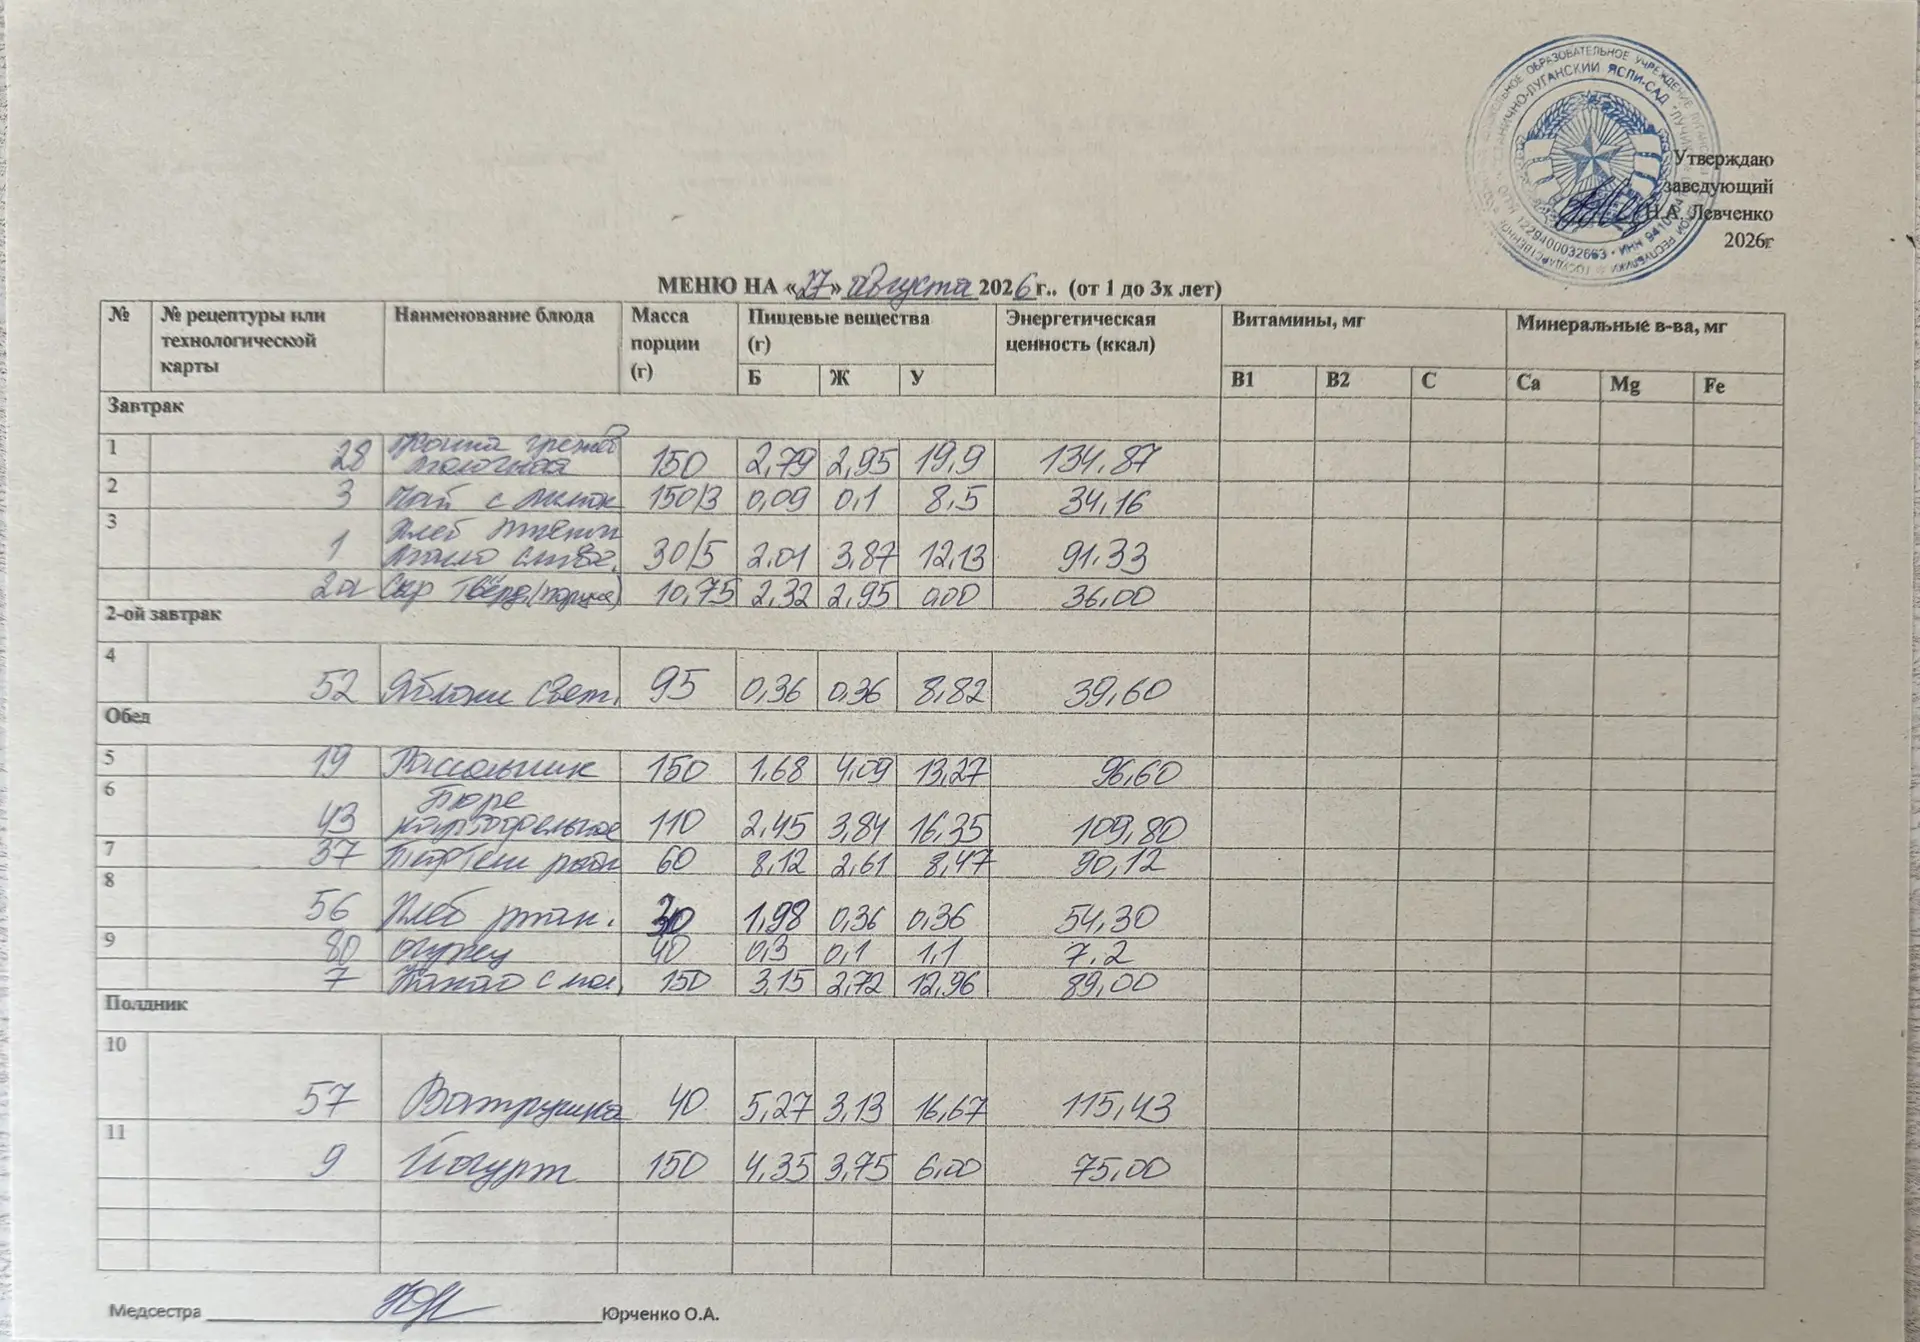 ОБРАЗОВАТЕЛЬНОЕ УЧРЕЖДЕНИЕ
ЛУГАНСКИЙ ЯСЛИ-САД
1229400032663 • ИНН
Утверждаю
заведующий
Н.А. Левченко
2026г
МЕНЮ НА «27» августа 2026 г.. (от 1 до 3х лет)
№ № рецептуры или технологической карты Наименование блюда Масса порции (г) Пищевые вещества (г) Энергетическая ценность (ккал) Витамины, мг Минеральные в-ва, мг
Б Ж У В1 В2 С Са Mg Fe
Завтрак
1 28 молочная 150 2,79 2,95 19,9 134,87
2 3 чай с 150/3 0,09 0,1 8,5 34,16
3 1 Хлеб масло 30/5 2,01 3,87 12,13 91,33
2а Сыр твёрд. 10,75 2,32 2,95 0,00 36,00
2-ой завтрак
4 52 Яблоки свеж. 95 0,36 0,36 8,82 39,60
Обед
5 19 Рассольник 150 1,68 4,09 13,27 96,60
6 43 Пюре картофельное 110 2,45 3,84 16,35 109,80
7 37 Тефтели 60 8,12 2,61 8,47 90,12
8 56 Хлеб ржан. 30 1,98 0,36 0,36 54,30
9 80 огурец 40 0,3 0,1 1,1 7,2
7 Какао с мол. 150 3,15 2,72 12,96 89,00
Полдник
10 57 Ватрушка 40 5,27 3,13 16,67 115,43
11 9 Йогурт 150 4,35 3,75 6,00 75,00
Медсестра Юрченко О.А.